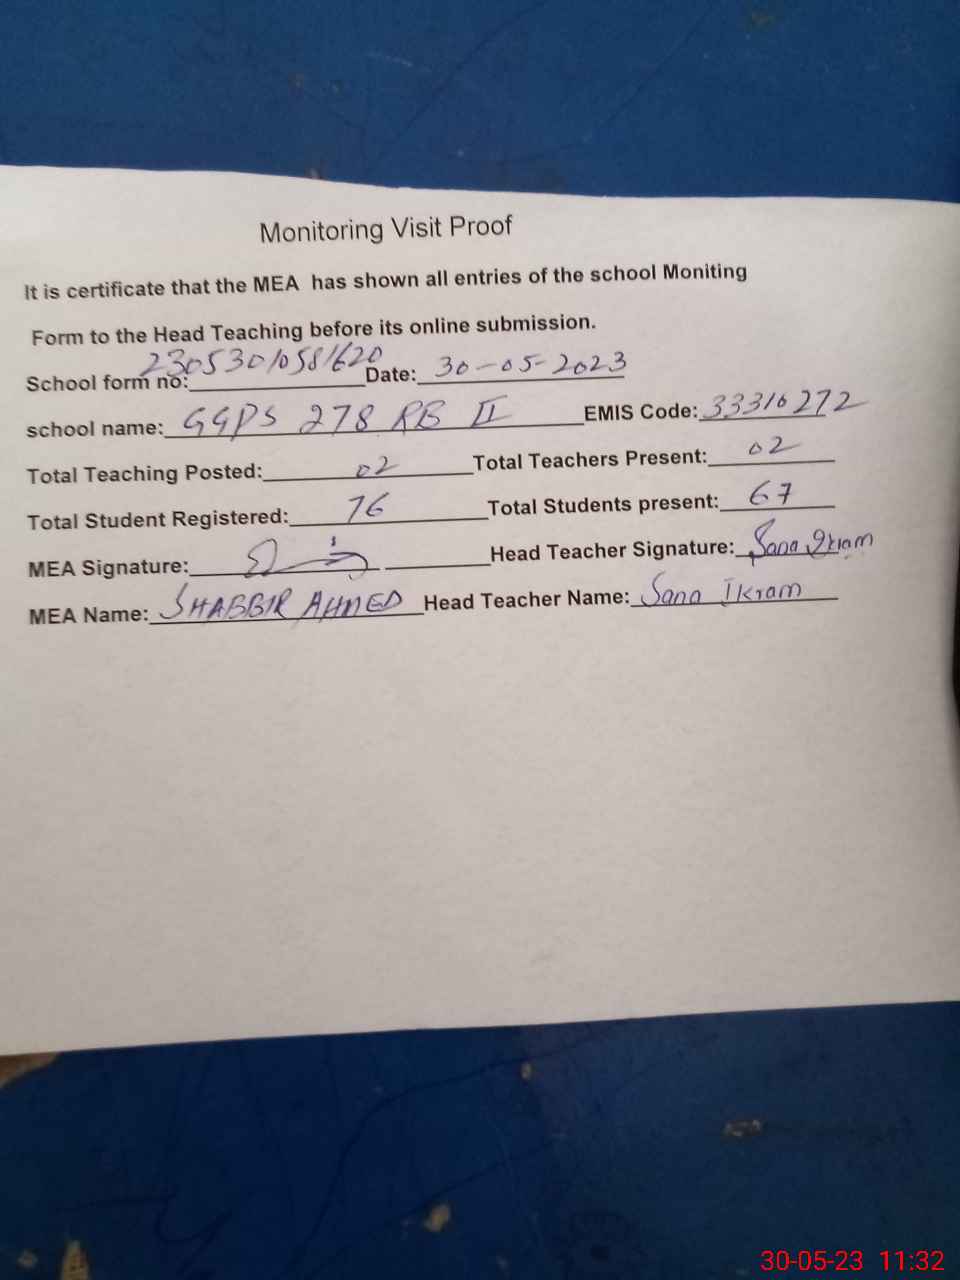 Monitoring Visit Proof
It is certificate that the MEA has shown all entries of the school Moniting
Form to the Head Teaching before its online submission.
School form no: 23053010581620 Date: 30-05-2023
school name: GGPS 278 RB II EMIS Code: 33310272
Total Teaching Posted: 02 Total Teachers Present: 02
Total Student Registered: 76 Total Students present: 67
MEA Signature: Head Teacher Signature: Sana Ikram
MEA Name: SHABBIR AHMED Head Teacher Name: Sana Ikram
30-05-23 11:32